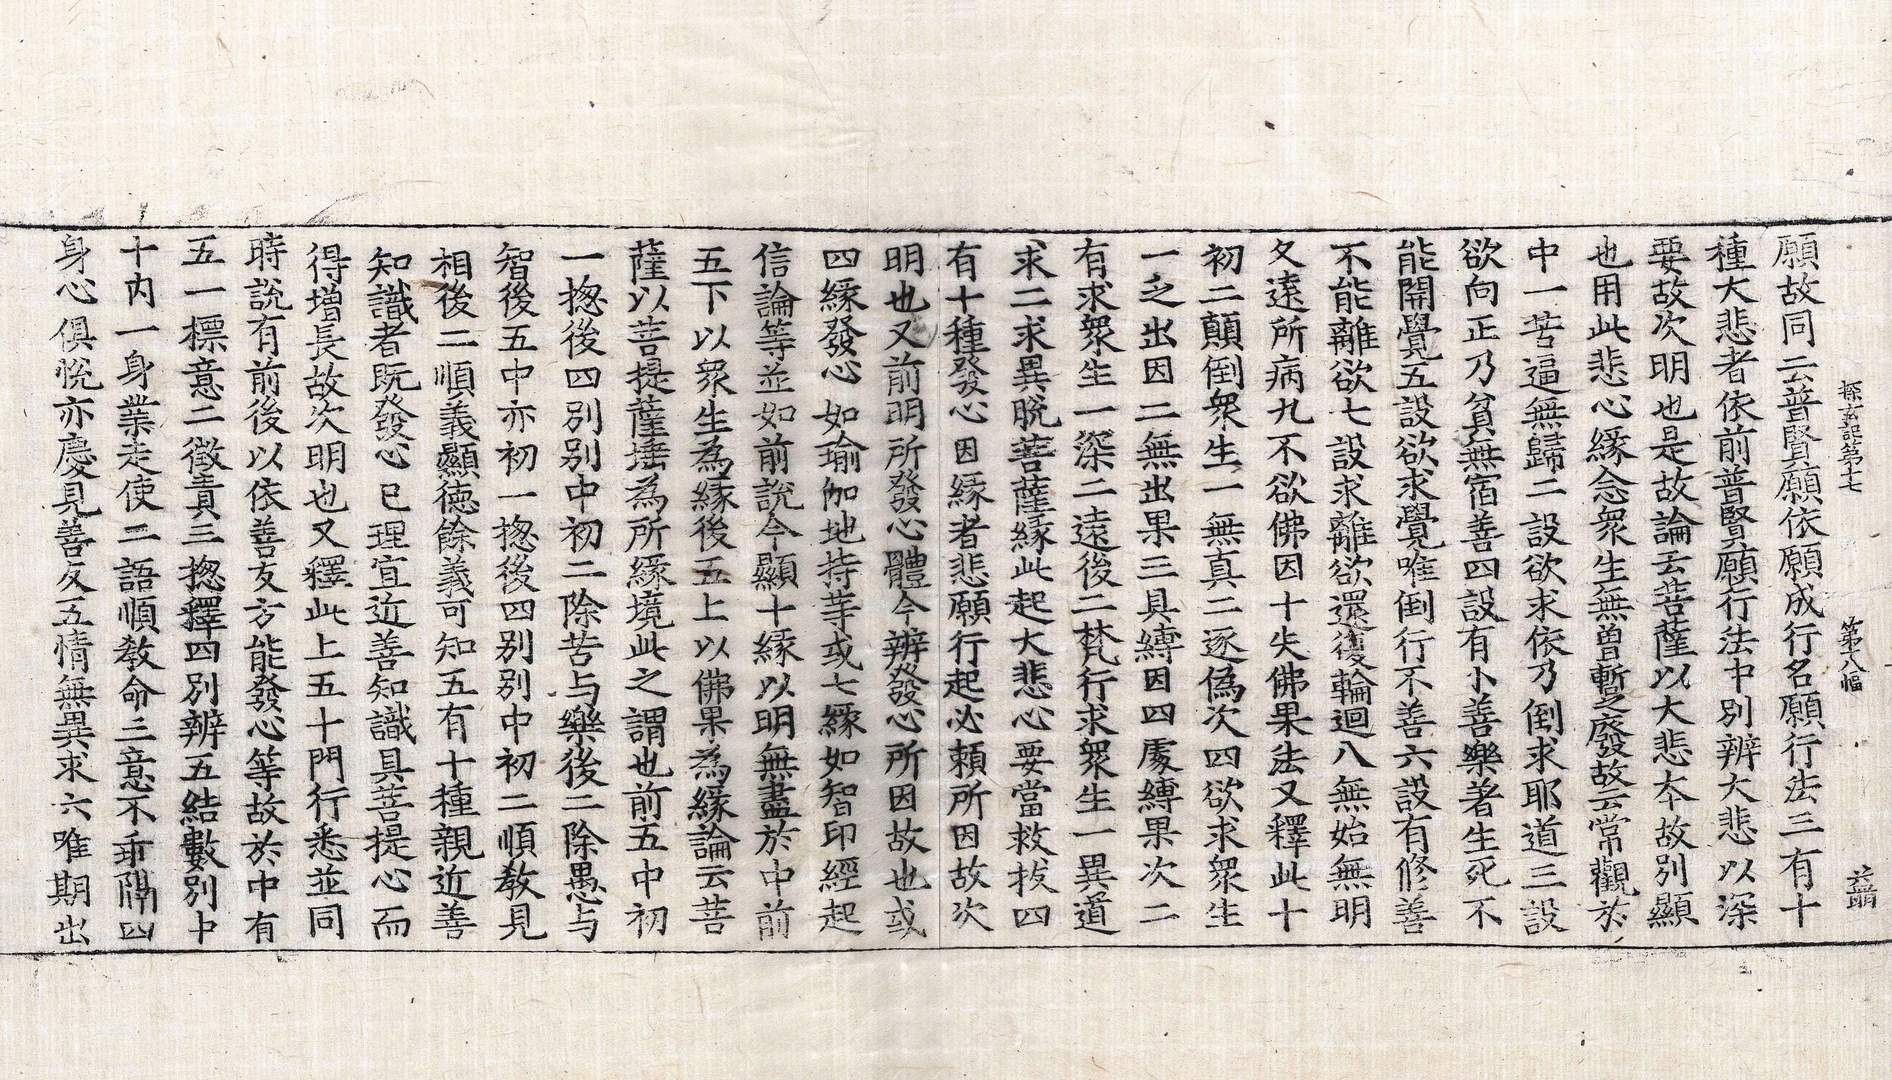 探玄記第十七 第八幅 益明
願故同云普賢願依願成行名願行法三有十
種大悲者依前普賢願行法中別辨大悲以深
要故次明也是故論云菩薩以大悲本故別顯
也用此悲心緣念衆生無曾暫之廢故云常觀於
中一苦逼無歸二設欲求依乃倒求耶道三設
欲向正乃貧無宿善四設有小善樂著生死不
能開覺五設欲求覺唯倒行不善六設有修善
不能離欲七設求離欲還復輪迴八無始無明
久遠所病九不欲佛因十失佛果法又釋此十
初二顛倒衆生一無真二逐偽次四欲求衆生
一乏出因二無出果三具縛因四處縛果次二
有求衆生一深二遠後二梵行求衆生一異道
求二求異脫菩薩緣此起大悲心要當救拔四
有十種發心因緣者悲願行起必賴所因故次
明也又前明所發心體今辨發心所因故也或
四緣發心如瑜伽地持等或七緣如智印經起
信論等並如前說今顯十緣以明無盡於中前
五下以衆生為緣後五上以佛果為緣論云菩
薩以菩提薩埵為所緣境此之謂也前五中初
一揔後四別別中初二除苦与樂後二除愚与
智後五中亦初一揔後四別別中初二順教見
相後二順義顯德餘義可知五有十種親近善
知識者既發心已理宜近善知識具菩提心而
得增長故次明也又釋此上五十門行悉並同
時說有前後以依善友方能發心等故於中有
五一標意二徵責三揔釋四別辨五結數別中
十內一身業走使二語順教命三意不乖隔四
身心俱悅亦慶見善友五情無異求六唯期出